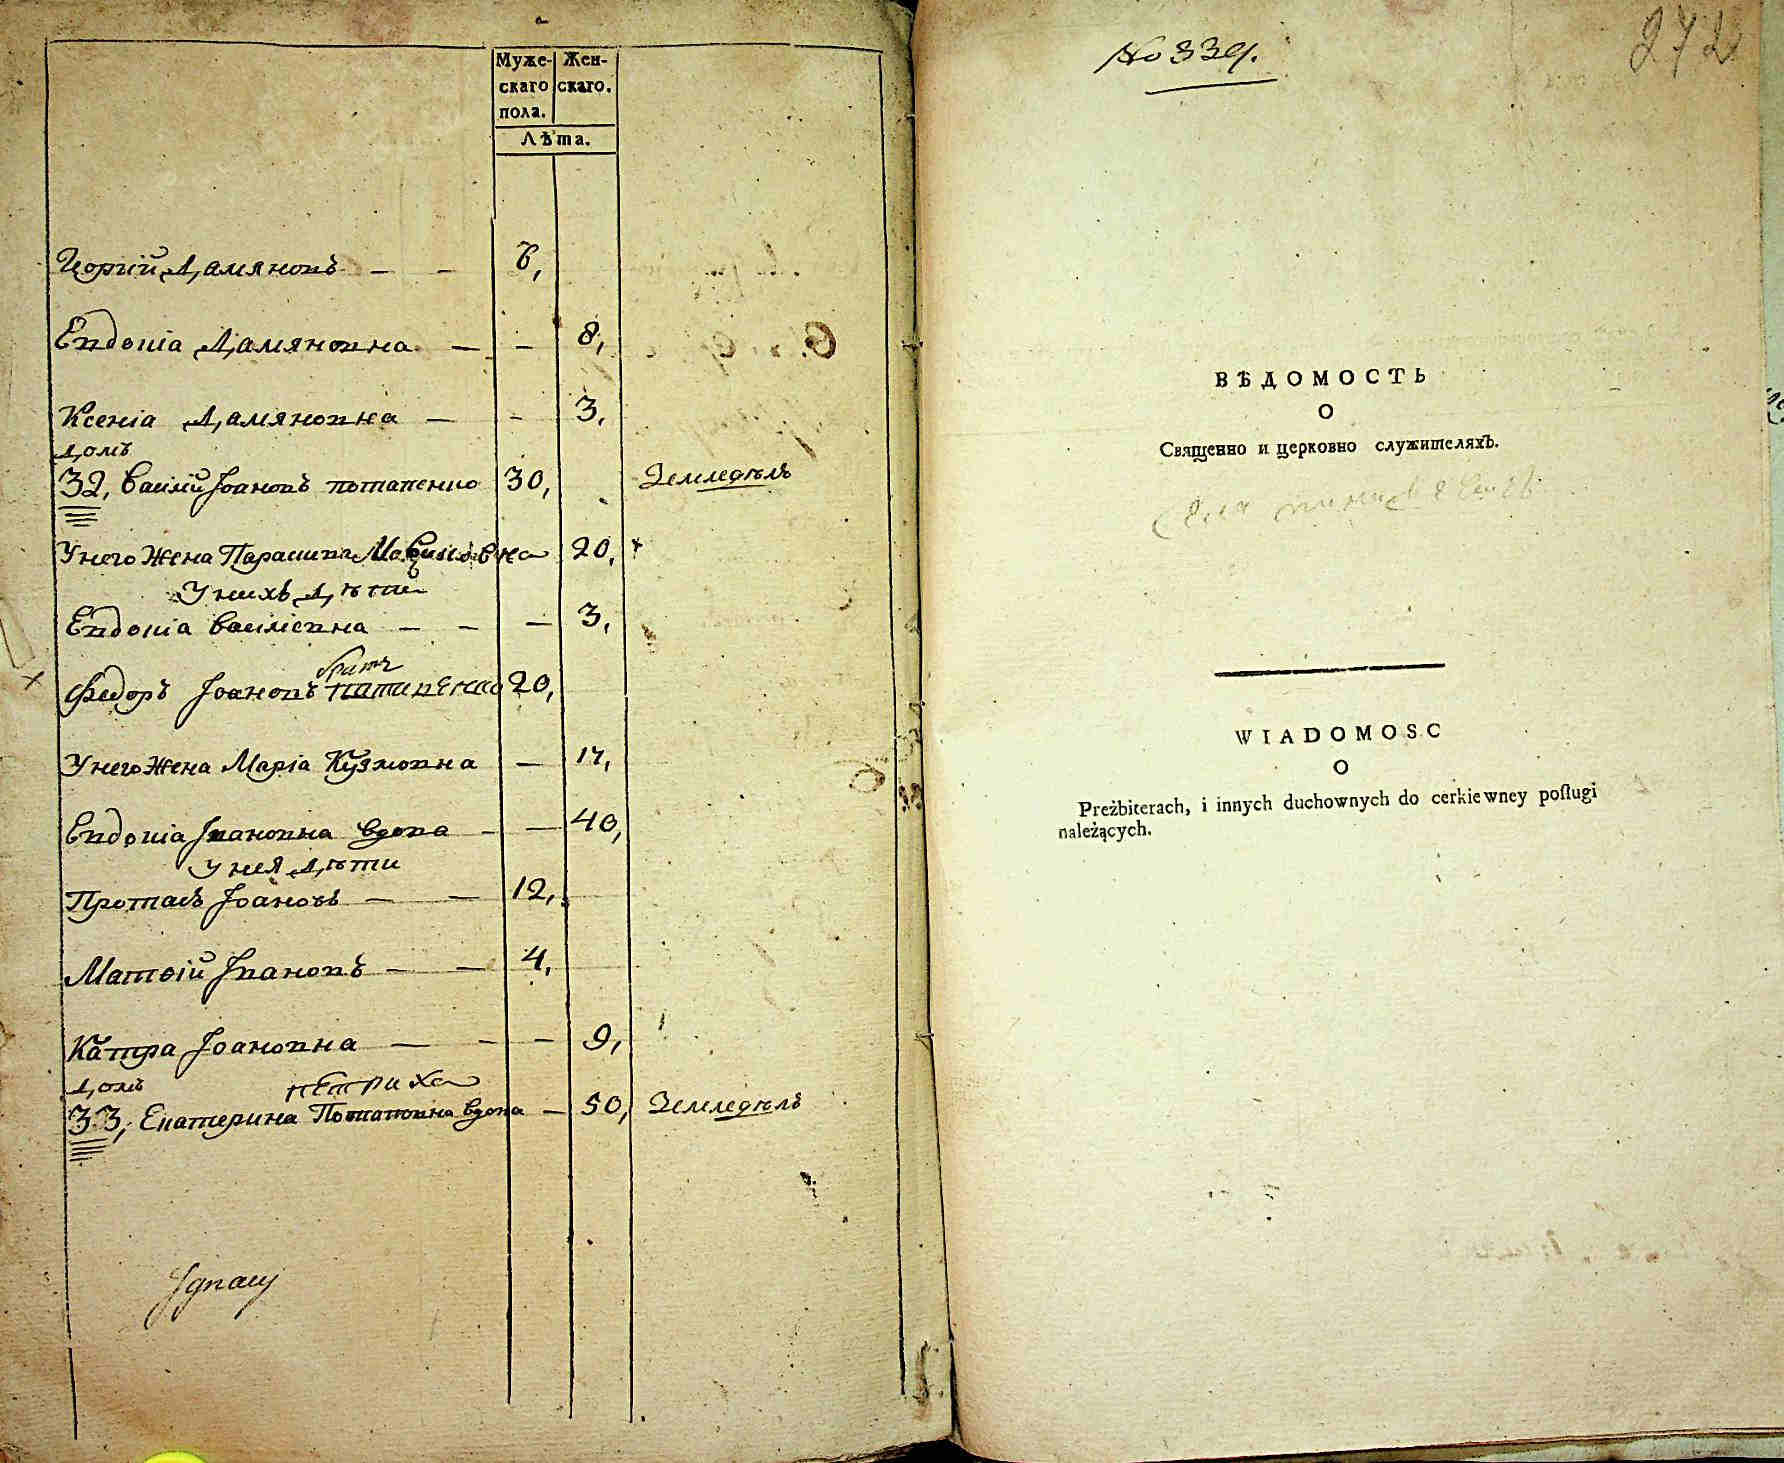 Муже- Жен-
скаго скаго.
пола.
Лѣта.
Юрий Дамяновъ — — 6,
Евдокіа Дамяновна — — 8,
Ксеніа Дамяновна — — 3,
домъ
32, Василий Іоановъ потапенко 30, Земледѣлъ
У него Жена Параскива 20,
У нихъ дѣти
Евдокіа Василіевна — — — 3,
братъ
Федоръ Іоановъ потапенко 20,
У него Жена Маріа Кузмовна — 17,
Евдокіа Івановна вдова — — 40,
У нея дѣти
Протасъ Іоановъ — — 12,
Матѳій Івановъ — — 4,
Катра Іоановна — — — 9,
домъ петриха
33, Екатерина Потаповна вдова — 50, Земледѣлъ
Ignacy
No 339.
272
ВѢДОМОСТЬ
О
Священно и церковно служителяхъ.
WIADOMOSC
O
Preźbiterach, i innych duchownych do cerkiewney poſługi
należących.